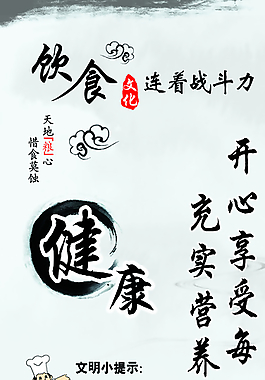 饮食文化连着战斗力
天地「粮」心
惜食莫蚀
开心享受每
充实营养
健康
文明小提示: